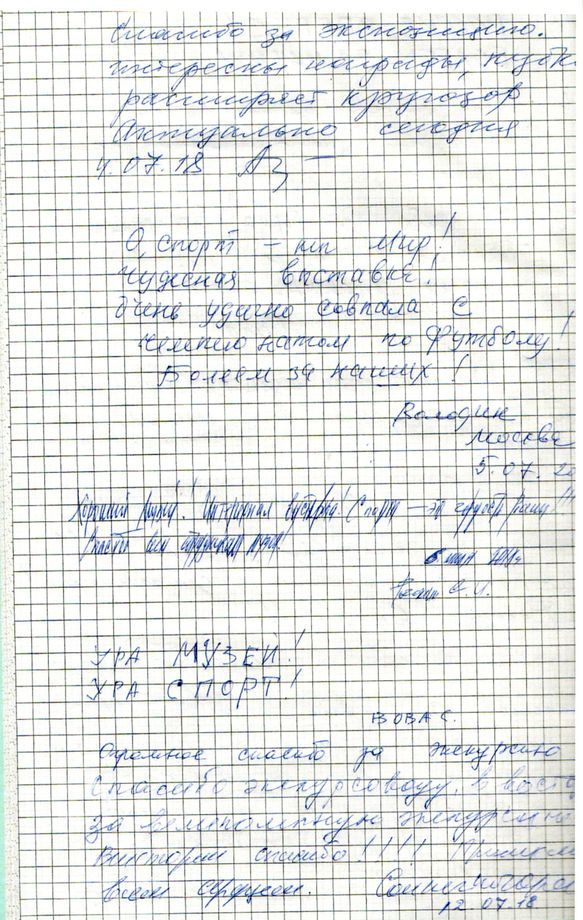 Спасибо за экспозицию.
интересны награды, кубк
расширяет кругозор
Актуально сегодня
4.07.18
О, спорт – ты Мир!
Чудесная выставка!
Очень удачно совпала с
чемпионатом по Футболу!
Болеем за наших!
Володик
Москва
5.07.20
Хороший музей! Интересная выставка! Спорт – это
Спасибо всем сотрудникам музея!
6 июля 2018г
УРА МУЗЕЙ!
УРА СПОРТ!
ВОВА С.
Огромное спасибо за экскурсию
Спасибо экскурсоводу
за великолепную экскурсию
Виктории спасибо!!!!
всем сердцем. Солнечногорск
12.07.18